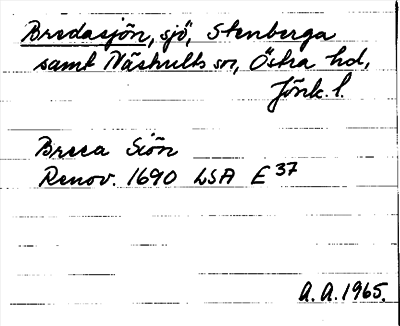 Bredasjön, sjö, Stenberga
samt Näshults sn, Östra hd,
Jönk. l.
Breea Siön
Renov. 1690 LSA E 37
A. A. 1965.